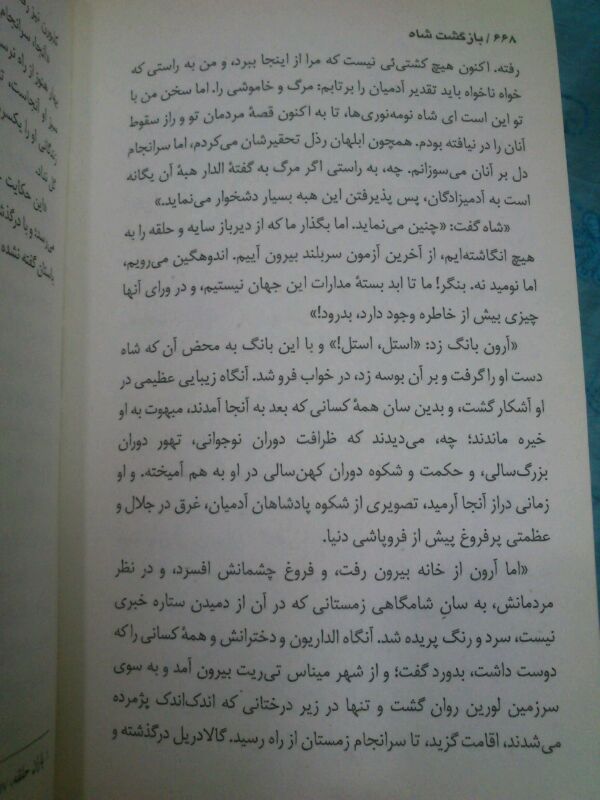 ۶۶۸ / بازگشت شاه
رفته. اکنون هیچ کشتی‌ئی نیست که مرا از اینجا ببرد، و من به راستی که
خواه ناخواه باید تقدیر آدمیان را برتابم: مرگ و خاموشی را. اما سخن من با
تو این است ای شاه نومه‌نوری‌ها، تا به اکنون قصهٔ مردمان تو و راز سقوط
آنان را در نیافته بودم. همچون ابلهان رذل تحقیرشان می‌کردم، اما سرانجام
دل بر آنان می‌سوزانم. چه، به راستی اگر مرگ به گفتهٔ الدار هبهٔ آن یگانه
است به آدمیزادگان، پس پذیرفتن این هبه بسیار دشخوار می‌نماید.»
«شاه گفت: «چنین می‌نماید. اما بگذار ما که از دیرباز سایه و حلقه را به
هیچ انگاشته‌ایم، از آخرین آزمون سربلند بیرون آییم. اندوهگین می‌رویم،
اما نومید نه. بنگر! ما تا ابد بستهٔ مدارات این جهان نیستیم، و در ورای آنها
چیزی بیش از خاطره وجود دارد، بدرود!»
«آرون بانگ زد: «استل، استل!» و با این بانگ به محض آن که شاه
دست او را گرفت و بر آن بوسه زد، در خواب فرو شد. آنگاه زیبایی عظیمی در
او آشکار گشت، و بدین سان همهٔ کسانی که بعد به آنجا آمدند، مبهوت به او
خیره ماندند؛ چه، می‌دیدند که ظرافت دوران نوجوانی، تهور دوران
بزرگ‌سالی، و حکمت و شکوه دوران کهن‌سالی در او به هم آمیخته. و او
زمانی دراز آنجا آرمید، تصویری از شکوه پادشاهان آدمیان، غرق در جلال و
عظمتی پرفروغ پیش از فروپاشی دنیا.
«اما آرون از خانه بیرون رفت، و فروغ چشمانش افسرد، و در نظر
مردمانش، به سانِ شامگاهی زمستانی که در آن از دمیدن ستاره خبری
نیست، سرد و رنگ پریده شد. آنگاه الداریون و دخترانش و همهٔ کسانی را که
دوست داشت، بدورد گفت؛ و از شهر میناس تی‌ریت بیرون آمد و به سوی
سرزمین لورین روان گشت و تنها در زیر درختانی که اندک‌اندک پژمرده
می‌شدند، اقامت گزید، تا سرانجام زمستان از راه رسید. گالادریل درگذشته و